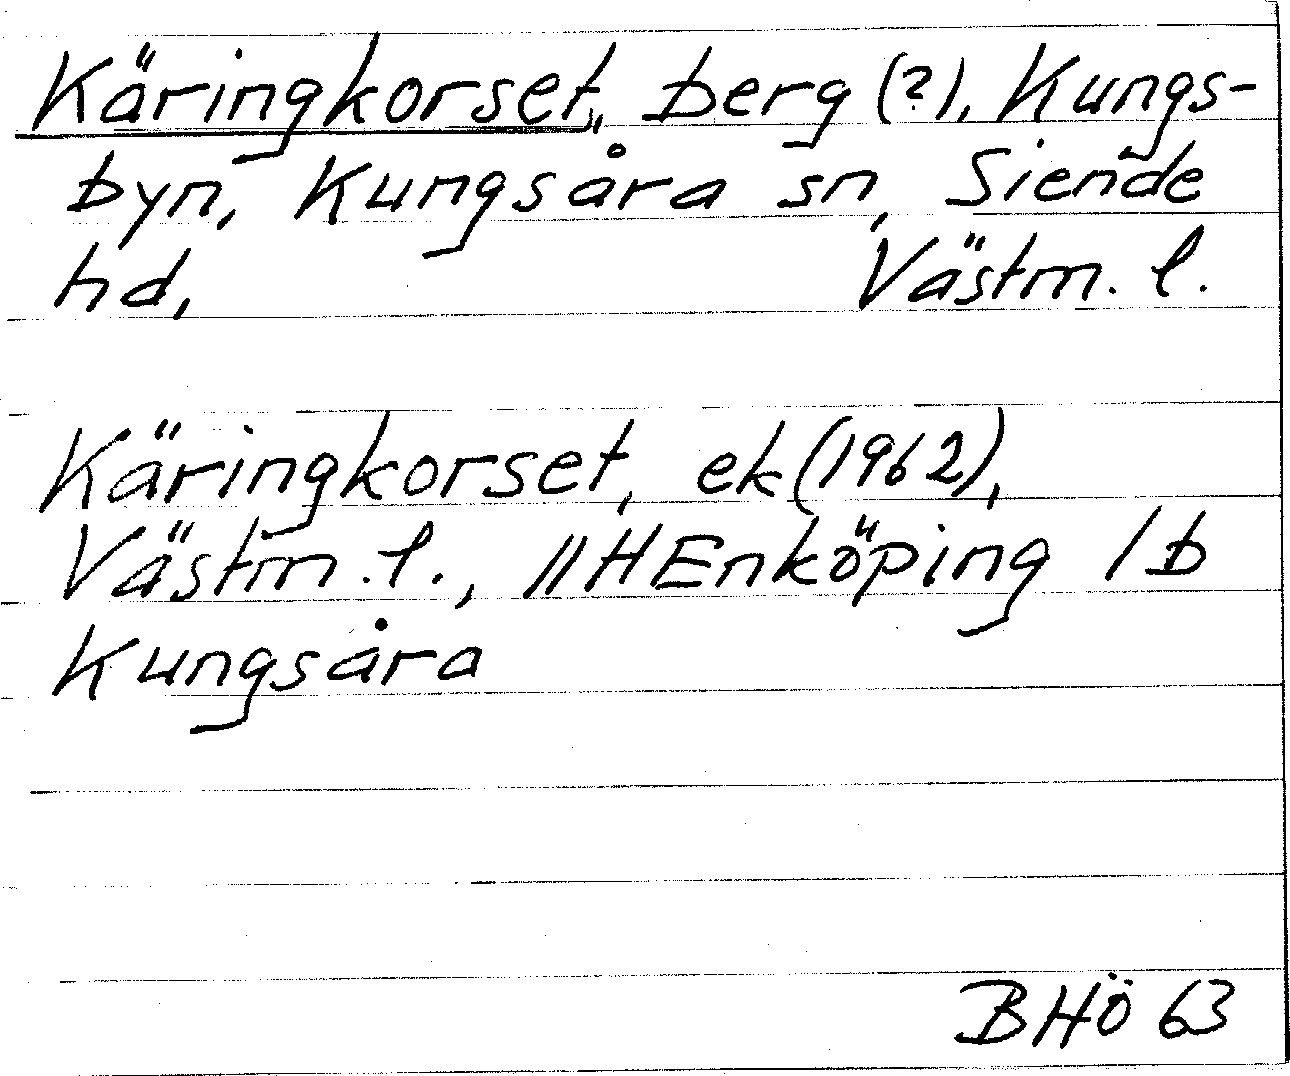 Käringkorset, berg (?), Kungs-
byn, Kungsåra sn, Siende
hd, Västm. l.
Käringkorset, ek (1962),
Västm. l., 11H Enköping 1b
Kungsåra
BHÖ 63